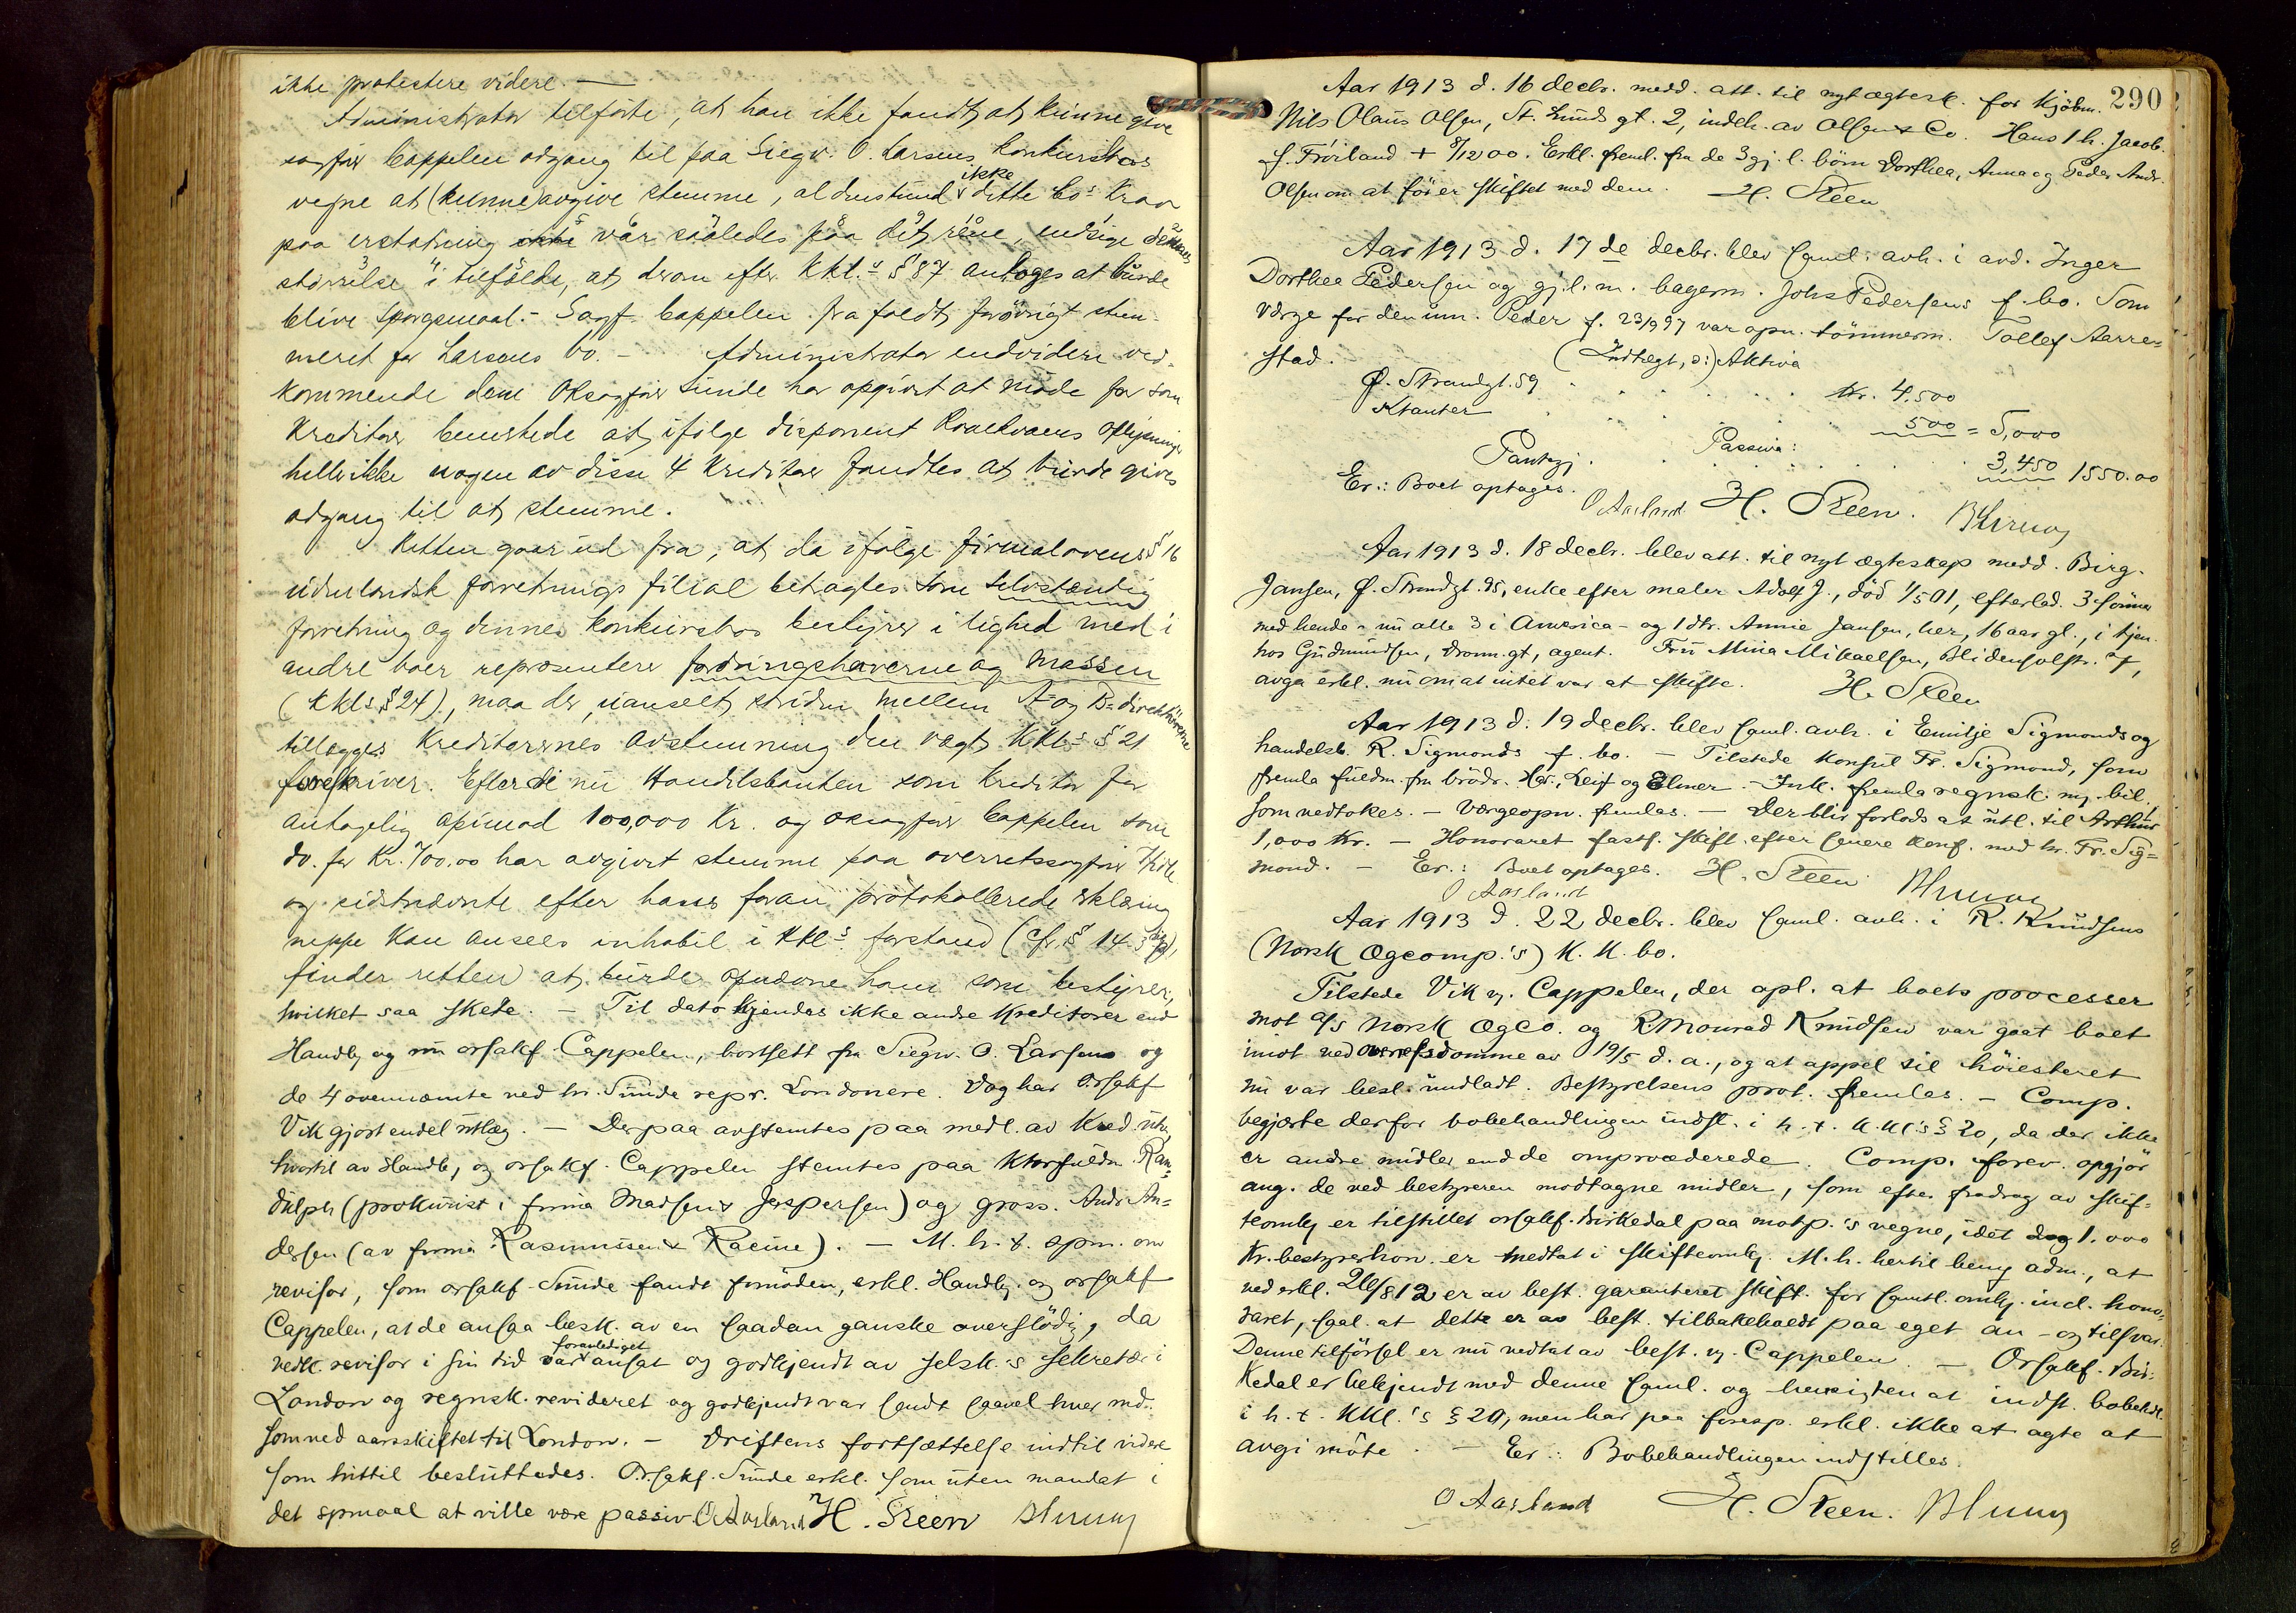 ikke protestere videre. —
Administrator tilførte, at han ikke fandt, at kunne give
sagfør Cappelen adgang til paa Siegw. O. Larsens Konkursbos
vegne at (kunne) avgive stemme, aldenstund ikke dette bo's Krav
paa erstatning var saaledes paa det rene, endsige dennes
størrelse i tilfælde, at derom efter Kkl.s § 87 antoges at burde
blive spørgsmaal. – Sagf. Cappelen frafaldt forøvrigt stem-
meret for Larsens bo. – Administrator endvidere ved-
kommende dem Oksagfør Sunde har opgivet at møde for som
Kreditor bemerkede at, ifølge disponent oplysninger
heller ikke nogen av disse 4 Kreditorer fandtes at burde gives
adgang til at stemme.
Retten gaar ud fra, at da ifølge firmalovens § 16
udenlandsk forretnings filial betragtes som selvstændig
forretning og dennes konkursbos bestyrer i lighed med i
andre boer repræsenterer fordringshaverne og massen
(Kkls § 24), maa der, uanseet striden mellem A- og B-direktørerne
tillægges Kreditorernes avstemning den vegt Kkl.s § 21
foreskriver. Efterdi nu Handelsbanken som Kreditor for
antagelig apimod 100,000 Kr. og oksagfør Cappelen som
do. for Kr. 700,00 har avgivet stemme paa overretssagfør Vik
og sidstnævnte efter hans foran protokollerede erklæring
neppe kan ansees inhabil i Kkl.s forstand (cfr. § 14 3),
finder retten at burde opnævne ham som bestyrer,
hvilket saa skete. – Til dato kjendes ikke andre Kreditorer end
Handb. og nu orsakf. Cappelen, bortsett fra Siegw. O. Larsens og
de 4 ovennævnte ved hr. Sunde repr. Londonere. Dog har Orsakf
Vik gjort endel utlæg. – Derpaa avstemtes paa medl. av Kred.utv.
hvortil av Handb, og orsakf. Cappelen stemtes paa Ktorfuldm. Ran-
dulph (prokurist i firma Madsen & Jespersen) og gross. Andr. An-
dersen (av firma Rasmussen & Racine). – M. h. t. spm. om
revisor, som orsakf. Sunde fandt fornøden, erkl. Handb. og orsakf
Cappelen, at de ansaa besk. av en saadan ganske overflødig, da
vedk. revisor i sin tid var foranlediget ansat og godkjendt av selsk.'s sekretær i
London og regnsk. revideret og godkjendt var sendt saavel hver md.
som ved aarsskiftet til London. – Driftens fortsættelse indtil videre
som hittil besluttedes. Orsakf. Sunde erkl. som uten mandat i
det spmaal at ville være passiv. O Aarland H. Steen
290
Aar 1913 d. 16 decbr. medd. att. til nyt ægtesk. for Kjøbm.
Nils Olaus Olsen, St. Lunds gt. 2, indeh. av Olsen & Co. Hans 1 h. Jacob.
f. Frøiland + 8/12 00. Erkl. freml. fra de 3 gj. l. børn Dorthea, Anna og Peder Andr.
Olsen om at før er skiftet med dem. H. Steen
Aar 1913 d. 17 de decbr. blev saml. avh. i avd. Inger
Dorthea Pedersen og gj. l. m. bagerm. Johs Pedersens f. bo. Som
værge for den um. Peder f. 23/9 97 var opn. tømmerm. Tollef Aarre-
stad. (Indtægt, ɔ:) Aktiva
Ø. Strandgt. 59 . . . . . . Kr. 4,500
Ktanter . . . . . 500 = 5,000
Passiva:
Pantegj. . . . . . . 3,450 1550.00
Er.: Boet optages. O Aarland H. Steen.
Aar 1913 d. 18 decb. blev att. til nyt ægteskap medd. Birg.
Jansen, Ø. Strandgt. 95, enke efter maler Adolf J., død 1/5 01, efterlad. 3 sønner
med hende – nu alle 3 i Amerika – og 1 dtr. Annie Jansen, her, 16 aar gl., i tjen.
hos Gudmundsen, Dronn.gt, agent. Fru Mina Mikaelsen, Blidensolstr. 27,
avga erkl. nu om at intet var at skifte. H. Steen
Aar 1913 d. 19 decbr. blev saml. avh. i Emilje Sigmonds og
handelsb. R. Sigmonds f. bo. – Tilstede Konsul Fr. Sigmond, som
fremla fuldm. fra brødr. Har., Leif og Elmer. – Ink. fremla regnsk. m. bil.
som vedtokes. – Værgeopn. fremlas. – Der blir forlods at utl. til Arthur
1,000 Kr. – Honoraret fasts. skift. efter senere konf. med hr. Fr. Sig-
mond. – Er.: Boet optages. H. Steen
O Aarland
Aar 1913 d. 22 decbr. blev saml. avh. i R. Knudsens
(Norsk Ægcomp.'s) K. K. bo.
Tilstede Vik v. Cappelen, der opl. at boets processer
mot a/s Norsk Ægco. og R. Monrad Knudsen var gaat boet
imot ved overretsdomme av 19/5 d. a., og at appel til høiesteret
nu var besl. undladt. Bestyrelsens prot. fremlas. – Comp.
begjærte derfor bobehandlingen indst. i h. t. K.Kl's § 20, da der ikke
er andre midler end de omprocederede. Comp. forev. opgjør
ang. de ved bestyreren modtagne midler, som efter fradrag av skif-
teomk er tilstillet orsakf. Birkedal paa motp.'s vegne, idet dog 1.000
Kr. bestyrerhon. er medtat i skifteomk. M. h. hertil bem. adm., at
ved erkl. 26/8 12 er av best. garanteret skift. for samtl. omk. incl. hono-
raret, saal. at dette er av best. tilbakeholdt paa eget an- og tilsvar.
Denne tilførsel er nu vedtat av best. v. Cappelen. – Orsakf. Bir-
kedal er bekjendt med denne saml. og hensigten at indst. bobehdl.
i h. t. KKl.'s § 20, men har paa foresp. erkl. ikke at agte at
avgi møte. – Er.: Bobehandlingen indstilles.
O Aarland H. Steen.